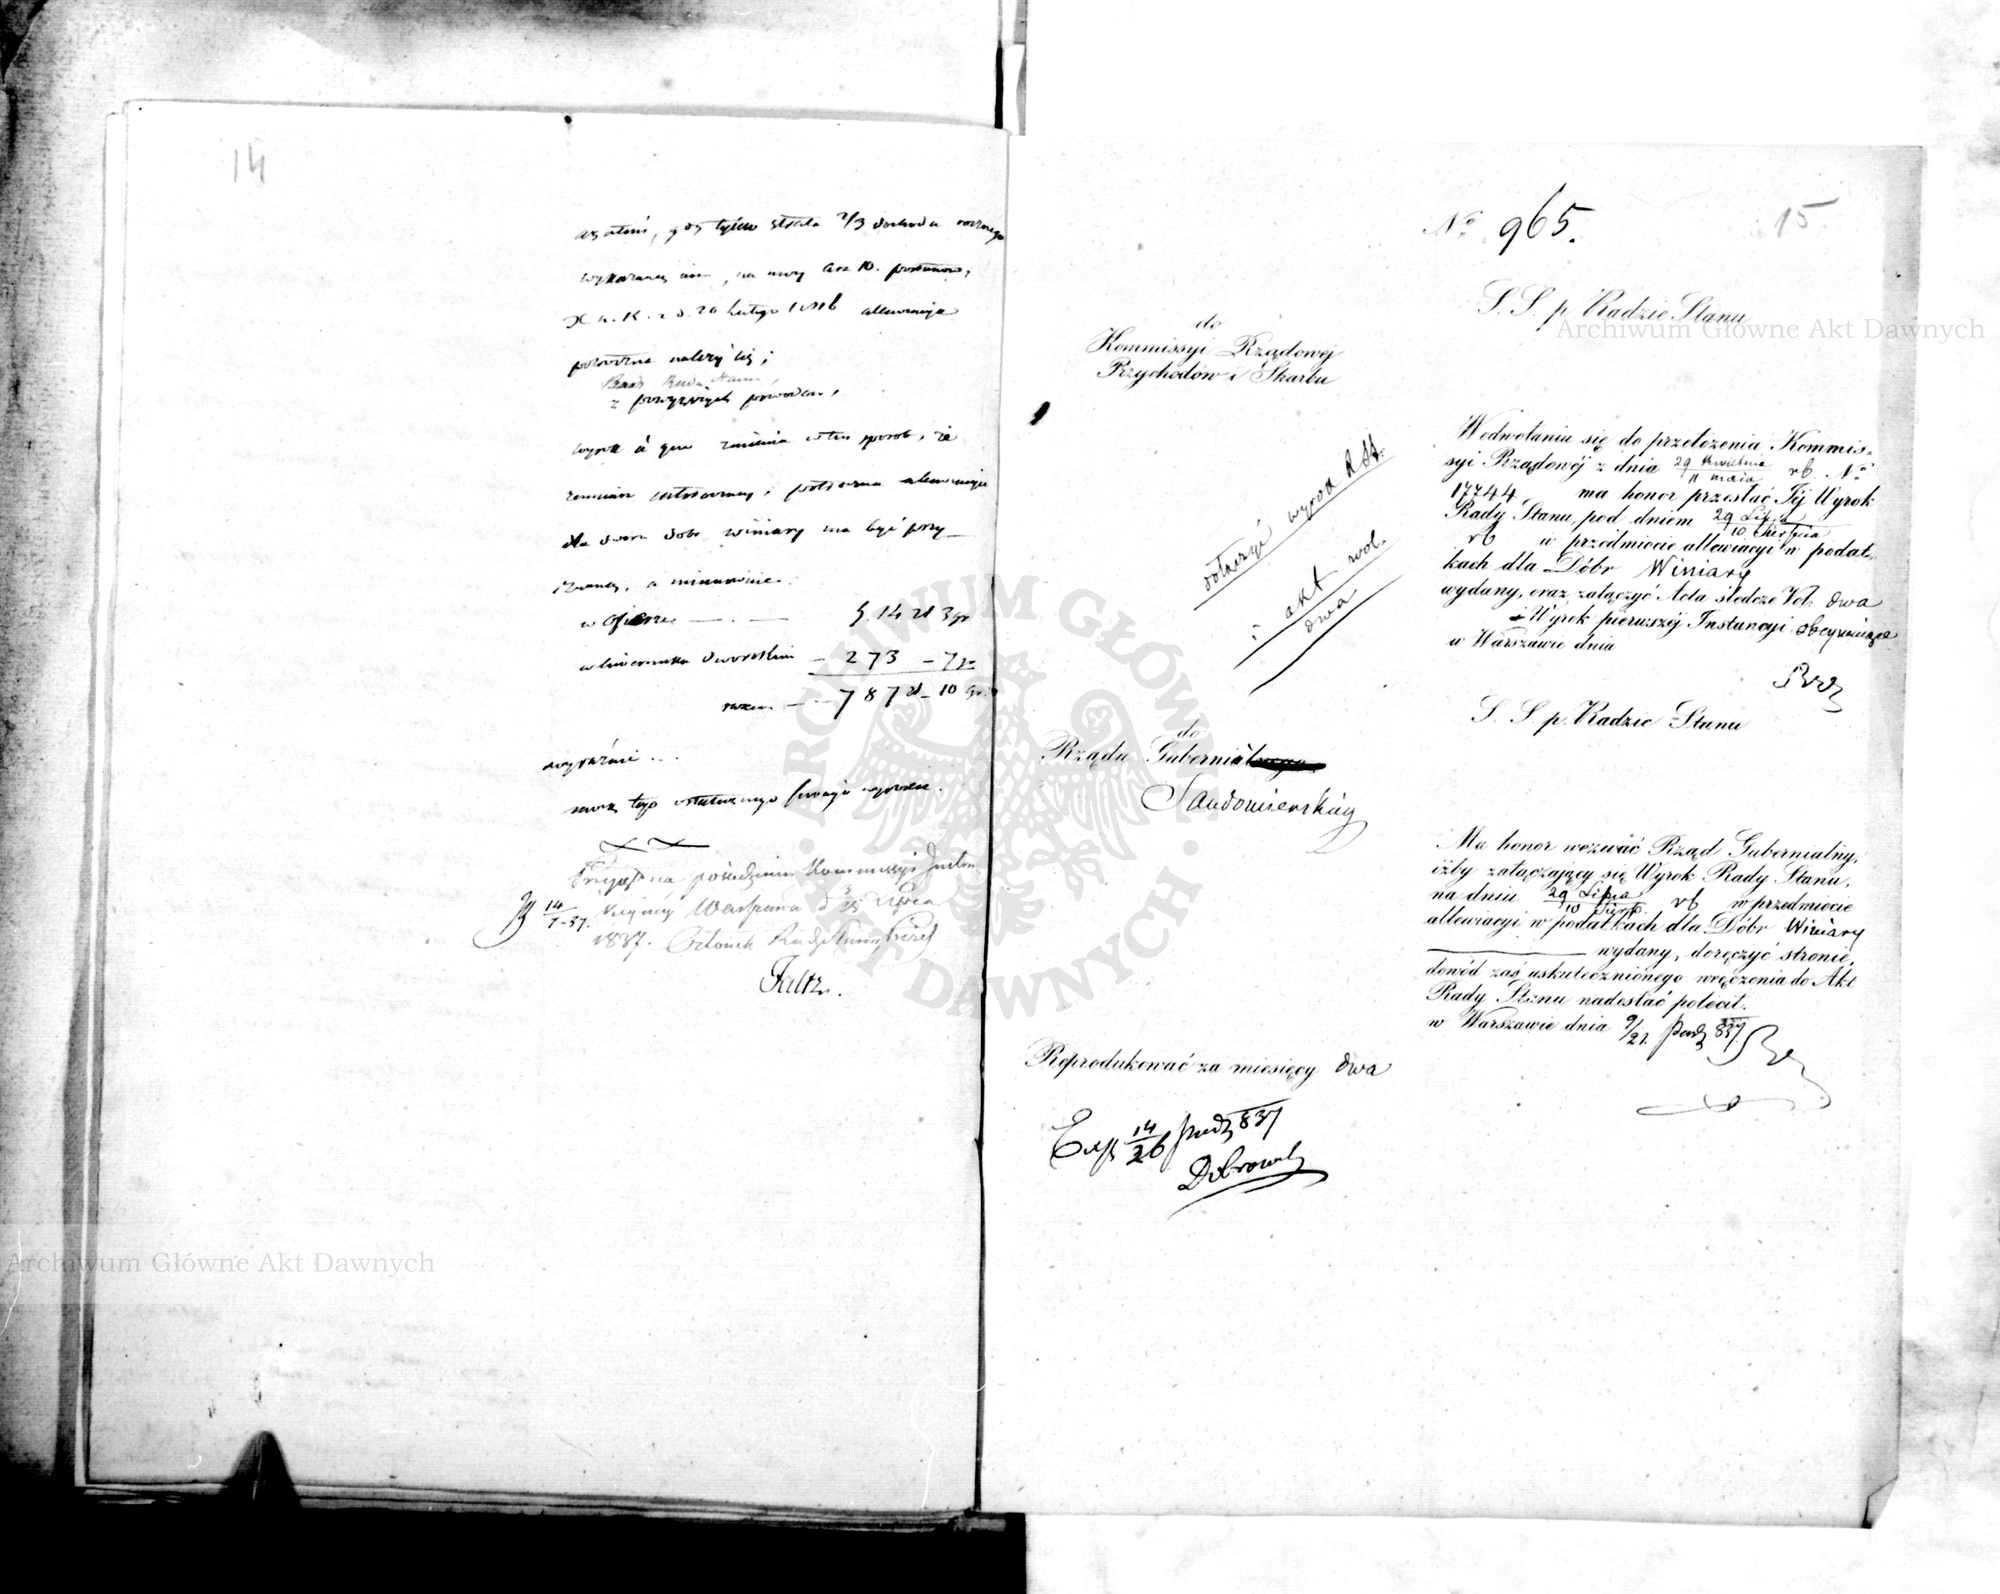 14
azatem, gdy tylko strata 2/3 dochodu rocznego
wykazaną, na mocy Art 10. postanow.
X. N. K. z d. 20 Lutego allewiacja
należy się;
z powyższych powodów,
wyrok w ten sposób, że
allewiacyi
dla dworu dobr Winiary ma być przy
znaną, a mianowicie.
w ofierze — . — 514 zł 3 gr
w liwerunku dworskim — 273 — 7 gr
razem — 787 zł — 10 gr.
wyraźnie . . .
mocą tego ostatecznego swego wyroku.
Przyjęto na posiedzeniu Kommissyi
14/7-37. Warszawa d. Lipca
1837. Członek Rady Stanu,
15.
No 965.
S. S. p. Radzie Stanu
do
Kommissyi Rządowej
Przychodów i Skarbu
Wodwołaniu się do przełożenia Kommis=
syi Rządowéj z dnia 29 Kwietnia / 11 maia rb. No
17744 ma honor przesłać Jéj Wyrok
Rady Stanu, pod dniem 29 Lipca / 10 Sierpnia
rb w przedmiocie allewiacyi w podat=
kach dla Dóbr Winiary
wydany, oraz załączyć Acta śledcze Vol. dwa
i Wyrok pierwszéj Instancyi obeymujące
w Warszawie dnia
dołączyć wyrok R St.
i akt vol.
dwa
S. S. p. Radzie Stanu
do
Rządu Gubernialnego
Sandomierskiég
Ma honor wezwać Rząd Gubernialny,
iżby załączający się Wyrok Rady Stanu,
na dniu 29 Lipca / 10 Sierp. rb w przedmiocie
allewiacyi w podatkach dla Dóbr Winiary
wydany, doręczyć stronie,
dowód zaś uskutecznionego wręczenia do Akt
Rady Stanu nadesłać polecił.
w Warszawie dnia 9/21 Paźdz 837.
Reprodukować za miesięcy dwa
Exp 14/26 Paźdz 837
Archiwum Główne Akt Dawnych
Archiwum Główne Akt Dawnych
ARCHIWUM GŁÓWNE AKT DAWNYCH